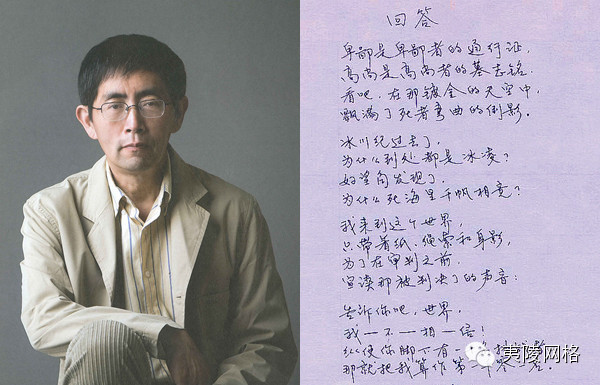 回答
卑鄙是卑鄙者的通行证,
高尚是高尚者的墓志铭.
看吧,在那镀金的天空中,
飘满了死者弯曲的倒影。
冰川纪过去了,
为什么到处都是冰凌?
好望角发现了,
为什么死海里千帆相竞?
我来到这个世界,
只带着纸、绳索和身影,
为了在审判之前,
宣读那被判决了的声音:
告诉你吧,世界,
我—不—相—信!
纵使你脚下有一
那就把我算作第
夷陵网格